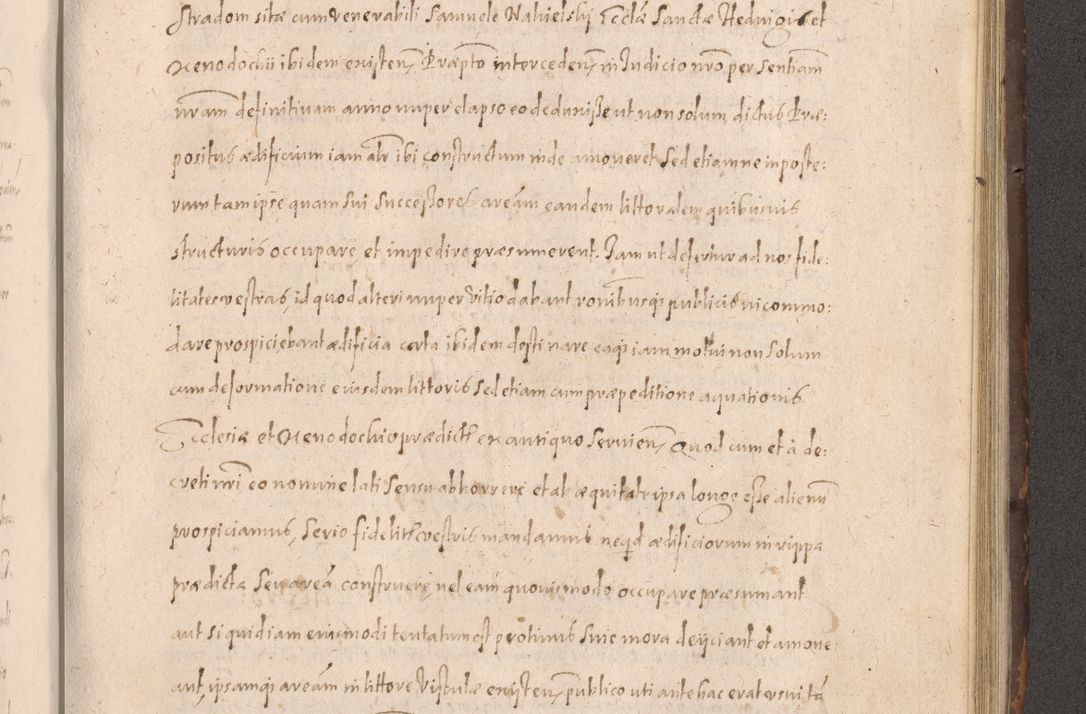 stradom sitæ cum venerabili Samuele Nahielskij Ecclæ Sanctæ Hedvigis et
Xenodochii ibidem existen, Præpto interceden, in Judicio nro per Sentiam
nram definitivam anno nuper elapso eo deduxisse ut non solum dictus Præ:
positus ædificium iam alr ibi constructum inde amoveret Sed etiam ne in poste:
rum tam ipse quam sui Successores aream eandem littoralem quibusvis
structuris occupare, et impedire præsumerent. Jam ut defertur ad nos fide:
litates vestras, id quod alteri nuper vitio dabant ronibusq publicis incommo:
dare prospiciebant ædificia certa ibidem destinare eaq iam moliri non solum
cum deformatione eiusdem littoris sed etiam cum præpeditione aquationis
Ecclesiæ et Xenodochio prædict ex antiquo servien, Quod cum et à de:
creti nri eo nomine lati Sensu abhorrere et ab æquitate ipsa longe esse alienu
prospiciamus, Serio fidelit vestris mandamus neqd ædificiorum in rippa
prædicta Seu areâ construere, vel eam quovis modo occupare præsumant
aut si quid iam eiusmodi tentatum est protinus sine mora deijciant et amove:
ant, ipsamq aream in littore Vistulæ existen, publico uti antehac erat usui tâ